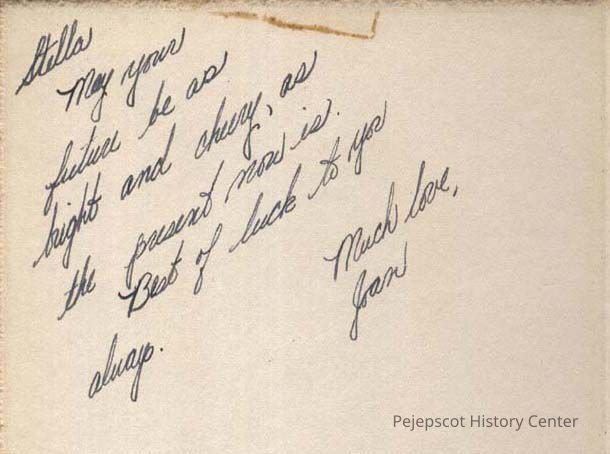 Stella
May your
future be as
bright and cheery, as
the present now is.
Best of luck to you
always.
Much love,
Joan
Pejepscot History Center